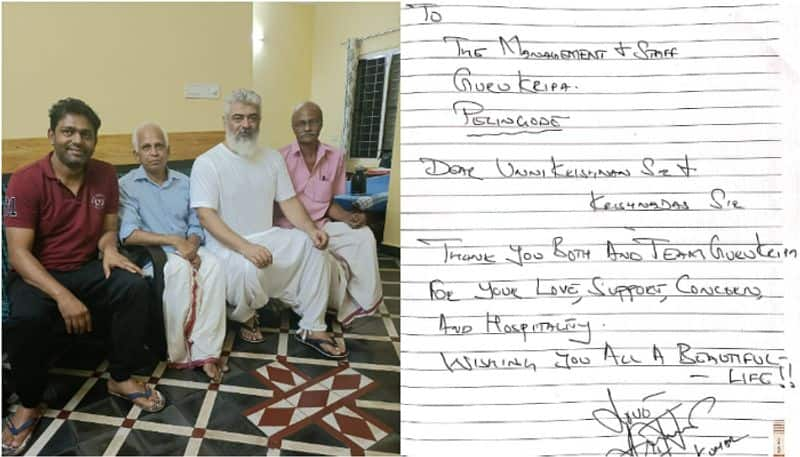 To
The Management & Staff
Gurukripa.
Peringode
Dear Unnikrishnan Sir &
Krishnadas Sir
Thank You Both And Team Gurukripa
For Your Love, Support, Concern,
And Hospitality.
Wishing You All A Beautiful -
- Life!!
Love
Kumar